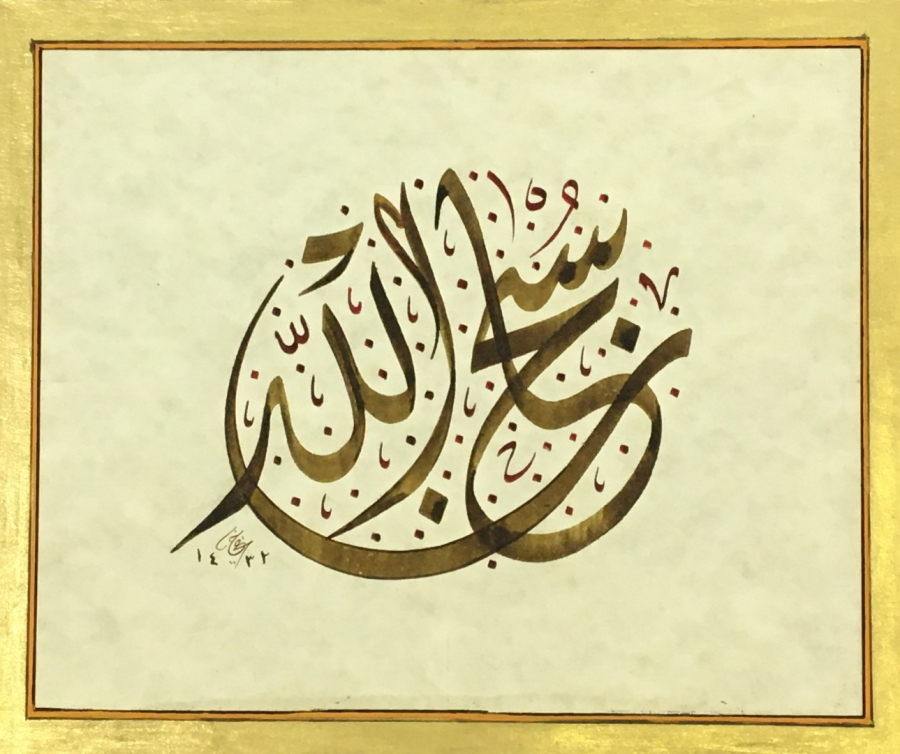 سُبْحَانَ اللّٰه
١٤٣٢